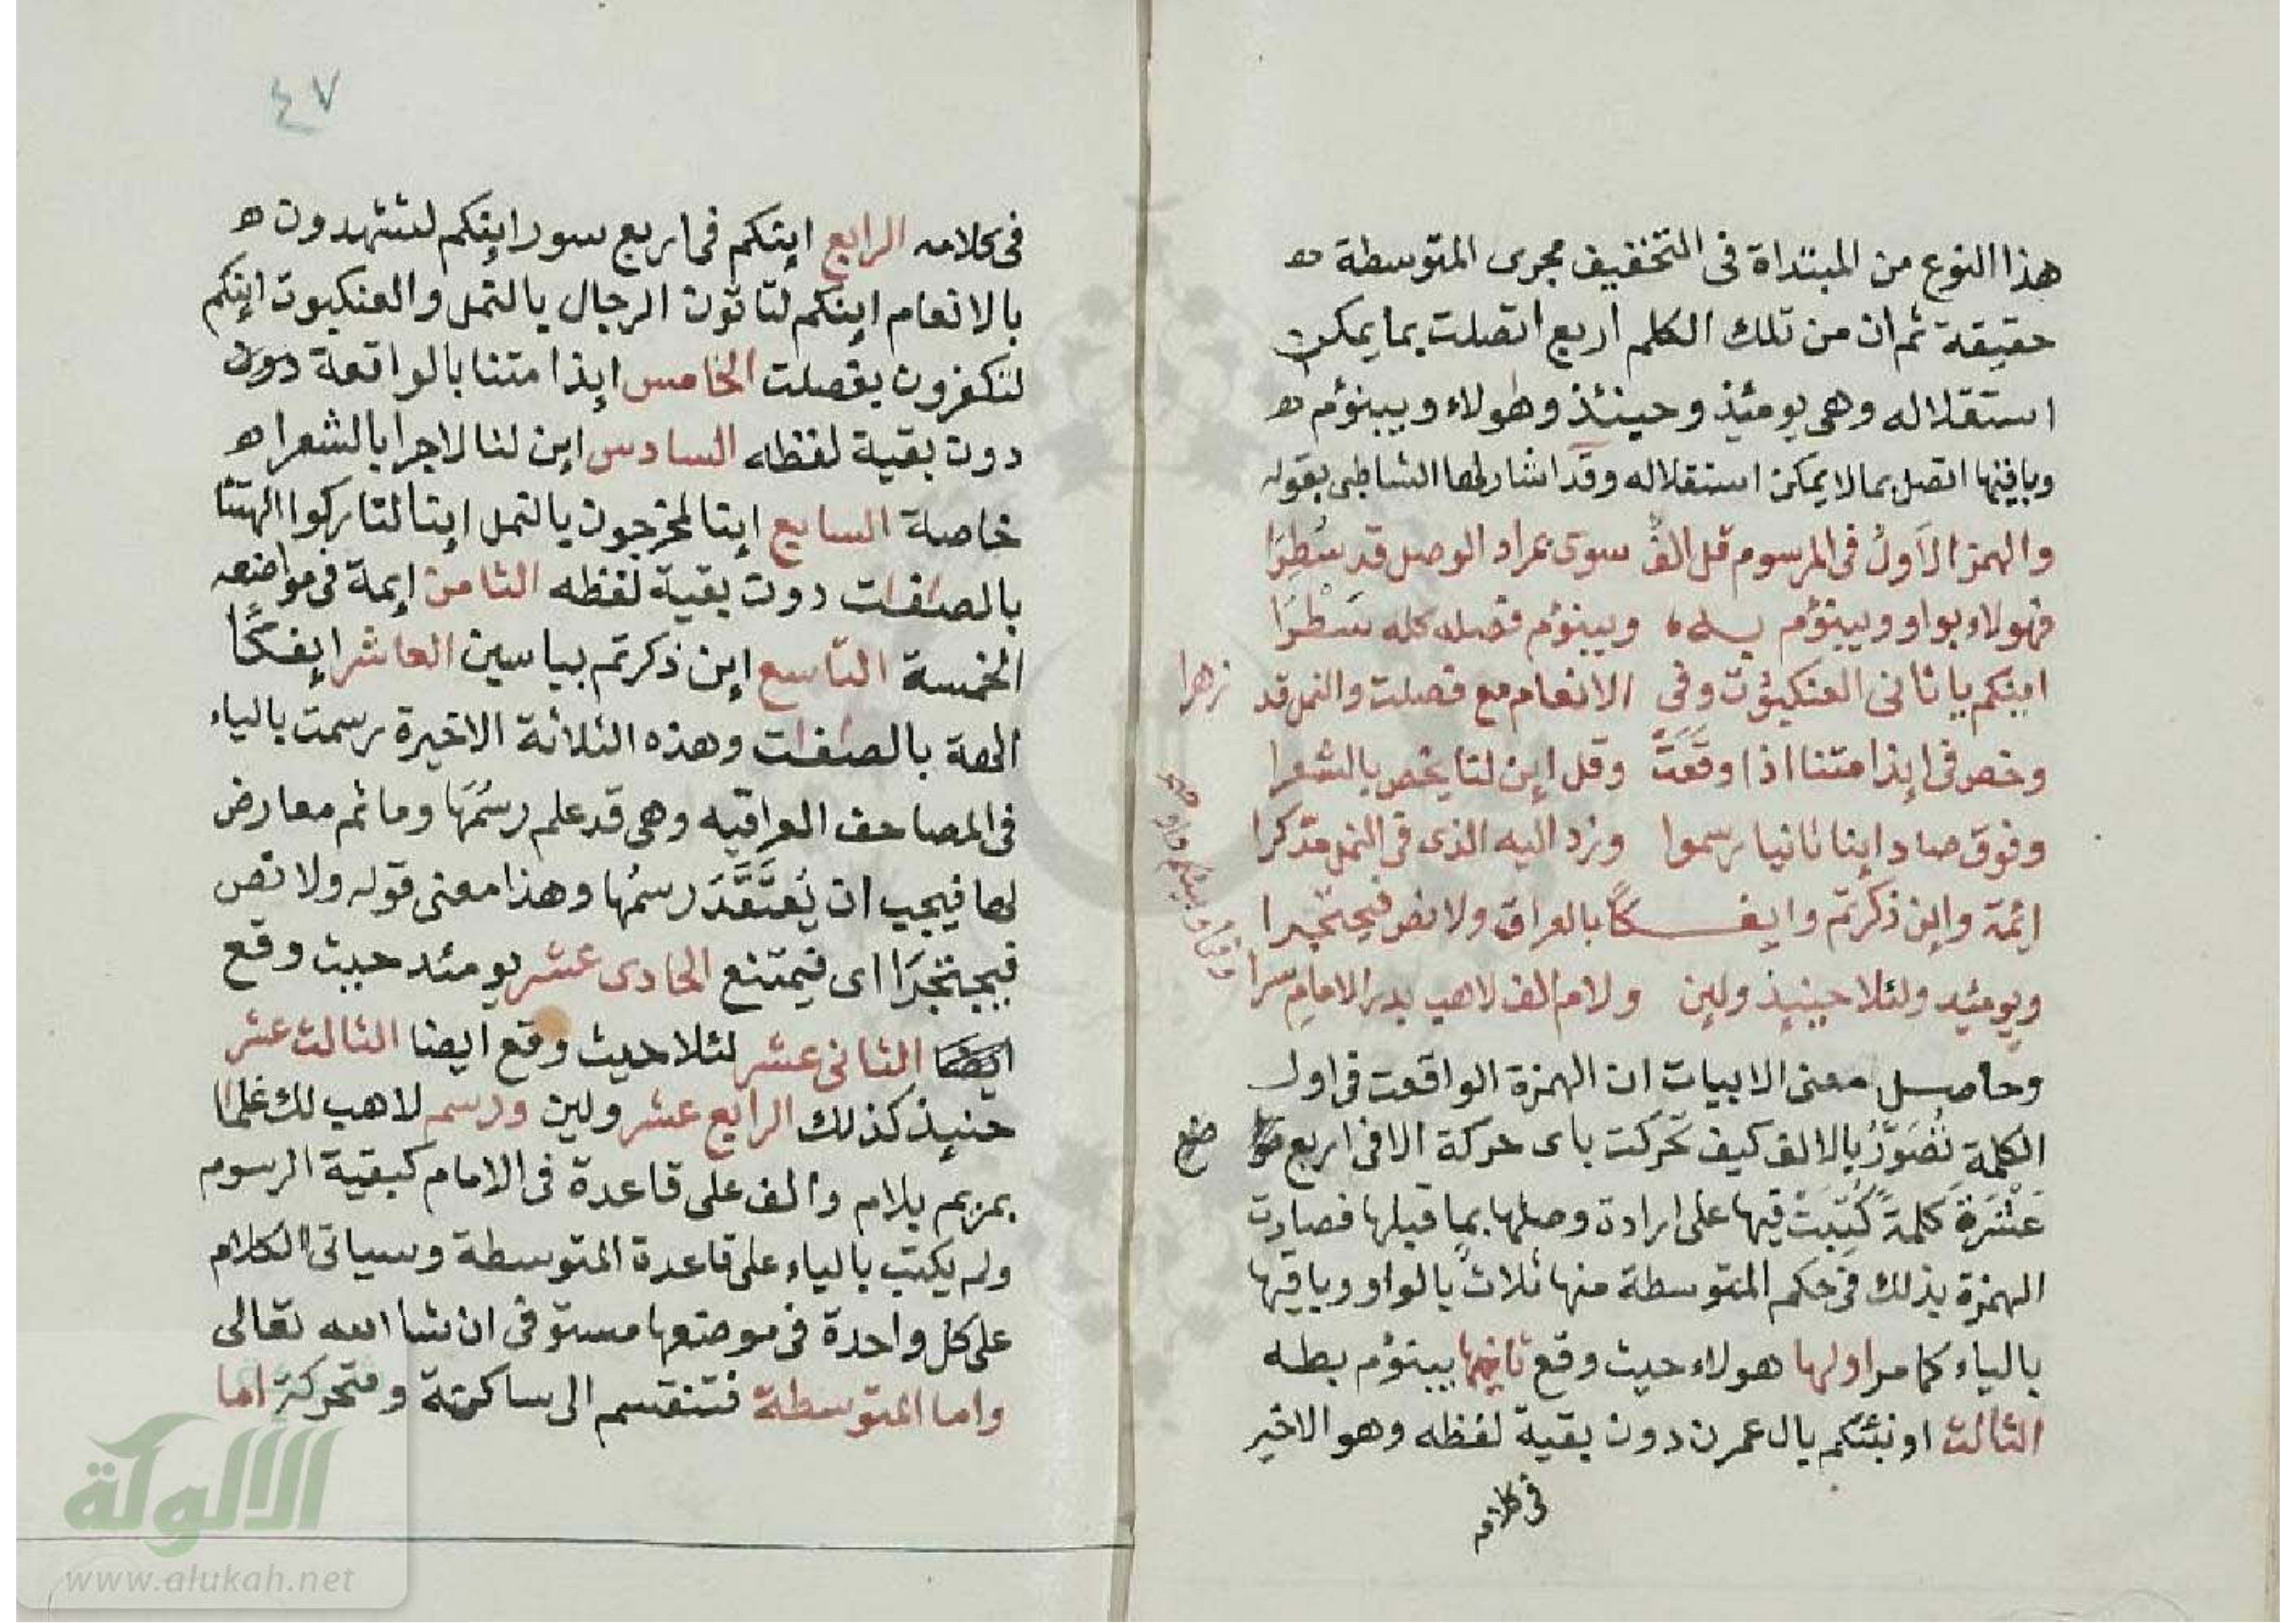 هذا النوع من المبتداة فى التخفيف مجرى المتوسطة
حقيقة ثم ان من تلك الكلم اربع اتصلت بما يمكن
استقلاله وهى يومئيذ وحينئذ وهولاء ويبنؤم
وباقيها اتصل بما لا يمكن استقلاله وقد اشار لها الشاطبى بقوله
والهمز الاَولُ فى المرسوم قل الفٌ سوى بمراد الوصل قد سُطِرَا
فهولاء بواو ويبنؤم به وبينوم فصله كله سَطْرَا
اينكم يا ثانى العنكبوت وفى الانعام مع فصلت والنمل قد زهرا
وخص فى ايذا متنا اذا وقَعَتْ وقل اين لنا يخص بالشعرا
وفوق صاد اينا ثانيا رسموا وزد اليه الذى فى النمل مدكرا
ائمة واين ذكرتم وايفكًا بالعراق ولا نص فيحتجرا
ويومئيد ولئلا حينيذ ولين ولام الف لاهب بدر الامام سرا
وحاصل معنى الابيات ان الهمزة الواقعت فى اول
الكلمةِ تُصَوَّرُ بالالف كيف تحَركت باى حركة الا فى اربع
عَشْرَةَ كلمةً كُتِبَتْ فيها على ارادة وصلها بما قبلها فصارت
الهمزة بذلك فى حكم المتوسطة منها ثلاث بالواو وباقيها
بالياء كما مر اولها هولاء حيث وقع ثانيها يبنؤم بطه
الثالث اونبئكم بال عمرن دون بقية لفظه وهو الاخير
فى كلامه
٤٧
فى كلامه الرابع اينكم فى اربع سور اينكم لتشهدون
بالانعام اينكم لتاتون الرجال بالنمل والعنكبوت اينكم
لتكفرون بفصلت الخامس ايذا متنا بالواقعة دون
دون بقية لفظه السادس اين لنا لاجرا بالشعرا
خاصة السابع اينا لمخرجون بالنمل اينا لتاركوا الهتنا
بالصفات دون بقية لفظه الثامن ايمة فى مواضعه
الخمسة التاسع اين ذكرتم بياسين العاشر ايفكًا
الهة بالصفات وهذه الثلاثة الاخيرة رسمت بالياء
فى المصاحف العراقيه وهى قد علم رسمُهَا وما ثم معارض
لها فيجب ان يُعتَقَدَ رسمُها وهذا معنى قوله ولا نص
فيحتجرَا اى فيمتنع الحادى عشر يومئد حيث وقع
ايضا الثانى عشر لئلا حيث وقع ايضا الثالث عشر
حنيذ كذلك الرابع عشر ولين ورسم لاهب لك غلما
بمريم بلام والف على قاعدة فى الامام كبقية الرسوم
ولم يكتب بالياء على قاعدة المتوسطة وسياتى الكلام
على كل واحدة فى موضعها مستوفى ان شا الله تعالى
واما المتوسطة فتنقسم الى ساكنة ومتحركة اما
الألوكة
www.alukah.net